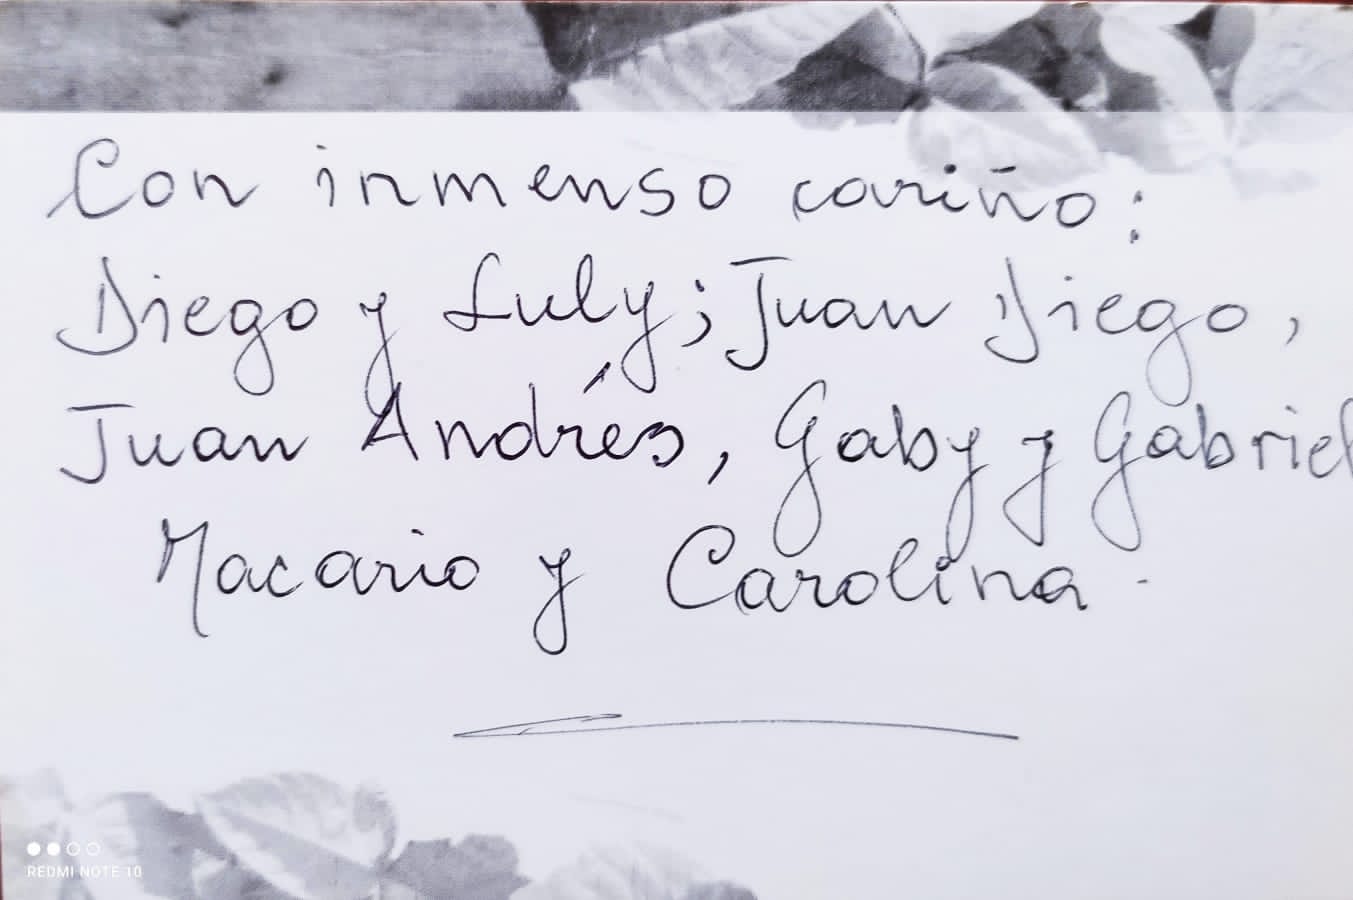 Con inmenso cariño:
Diego y Luly; Juan Diego,
Juan Andrés, Gaby y Gabriel
Macario y Carolina.
REDMI NOTE 10